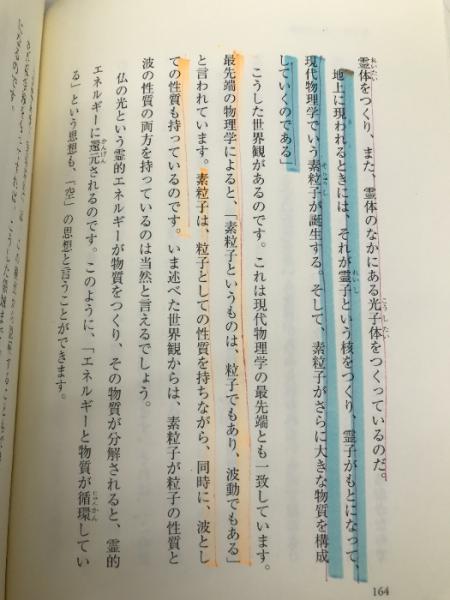 霊体をつくり、また、霊体のなかにある光子体をつくっているのだ。
地上に現われるときには、それが霊子という核をつくり、霊子がもとになって、
現代物理学でいう素粒子が誕生する。そして、素粒子がさらに大きな物質を構成
していくのである」
こうした世界観があるのです。これは現代物理学の最先端とも一致しています。
最先端の物理学によると、「素粒子というものは、粒子でもあり、波動でもある」
と言われています。素粒子は、粒子としての性質を持ちながら、同時に、波とし
ての性質も持っているのです。いま述べた世界観からは、素粒子が粒子の性質と
波の性質の両方を持っているのは当然と言えるでしょう。
仏の光という霊的エネルギーが物質をつくり、その物質が分解されると、霊的
エネルギーに還元されるのです。このように、「エネルギーと物質が循環してい
る」という思想も、「空」の思想と言うことができます。
164